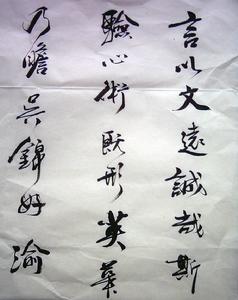 言以文遠誠哉斯
驗心術既形英華
乃贍吳錦好渝